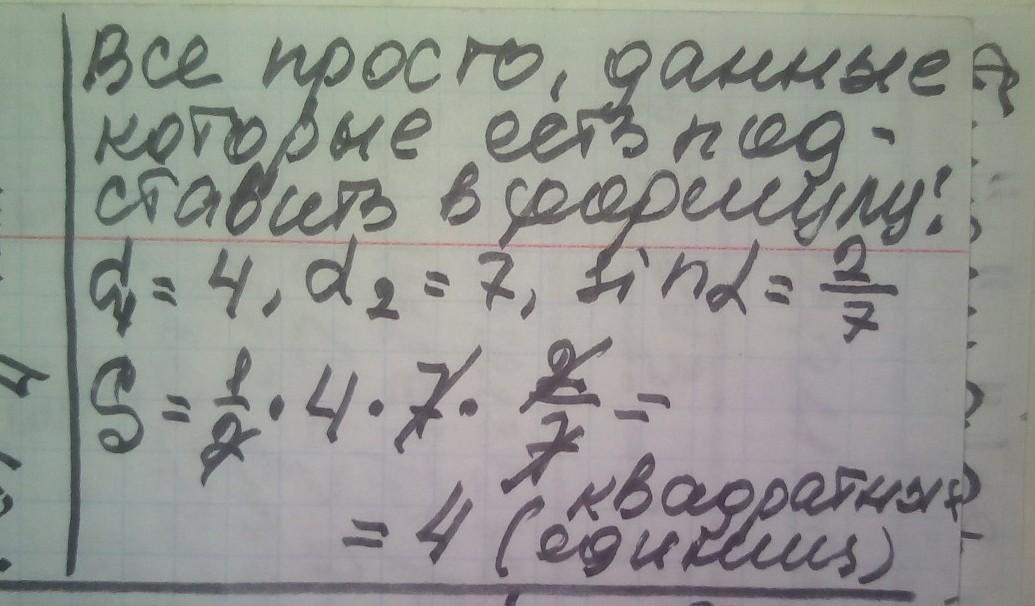 Все просто, данные
которые есть под-
ставить в формулу:
d₁ = 4, d₂ = 7, sin α = 2/7
S = 1/2 · 4 · 7 · 2/7 =
= 4 (квадратных
единиц)